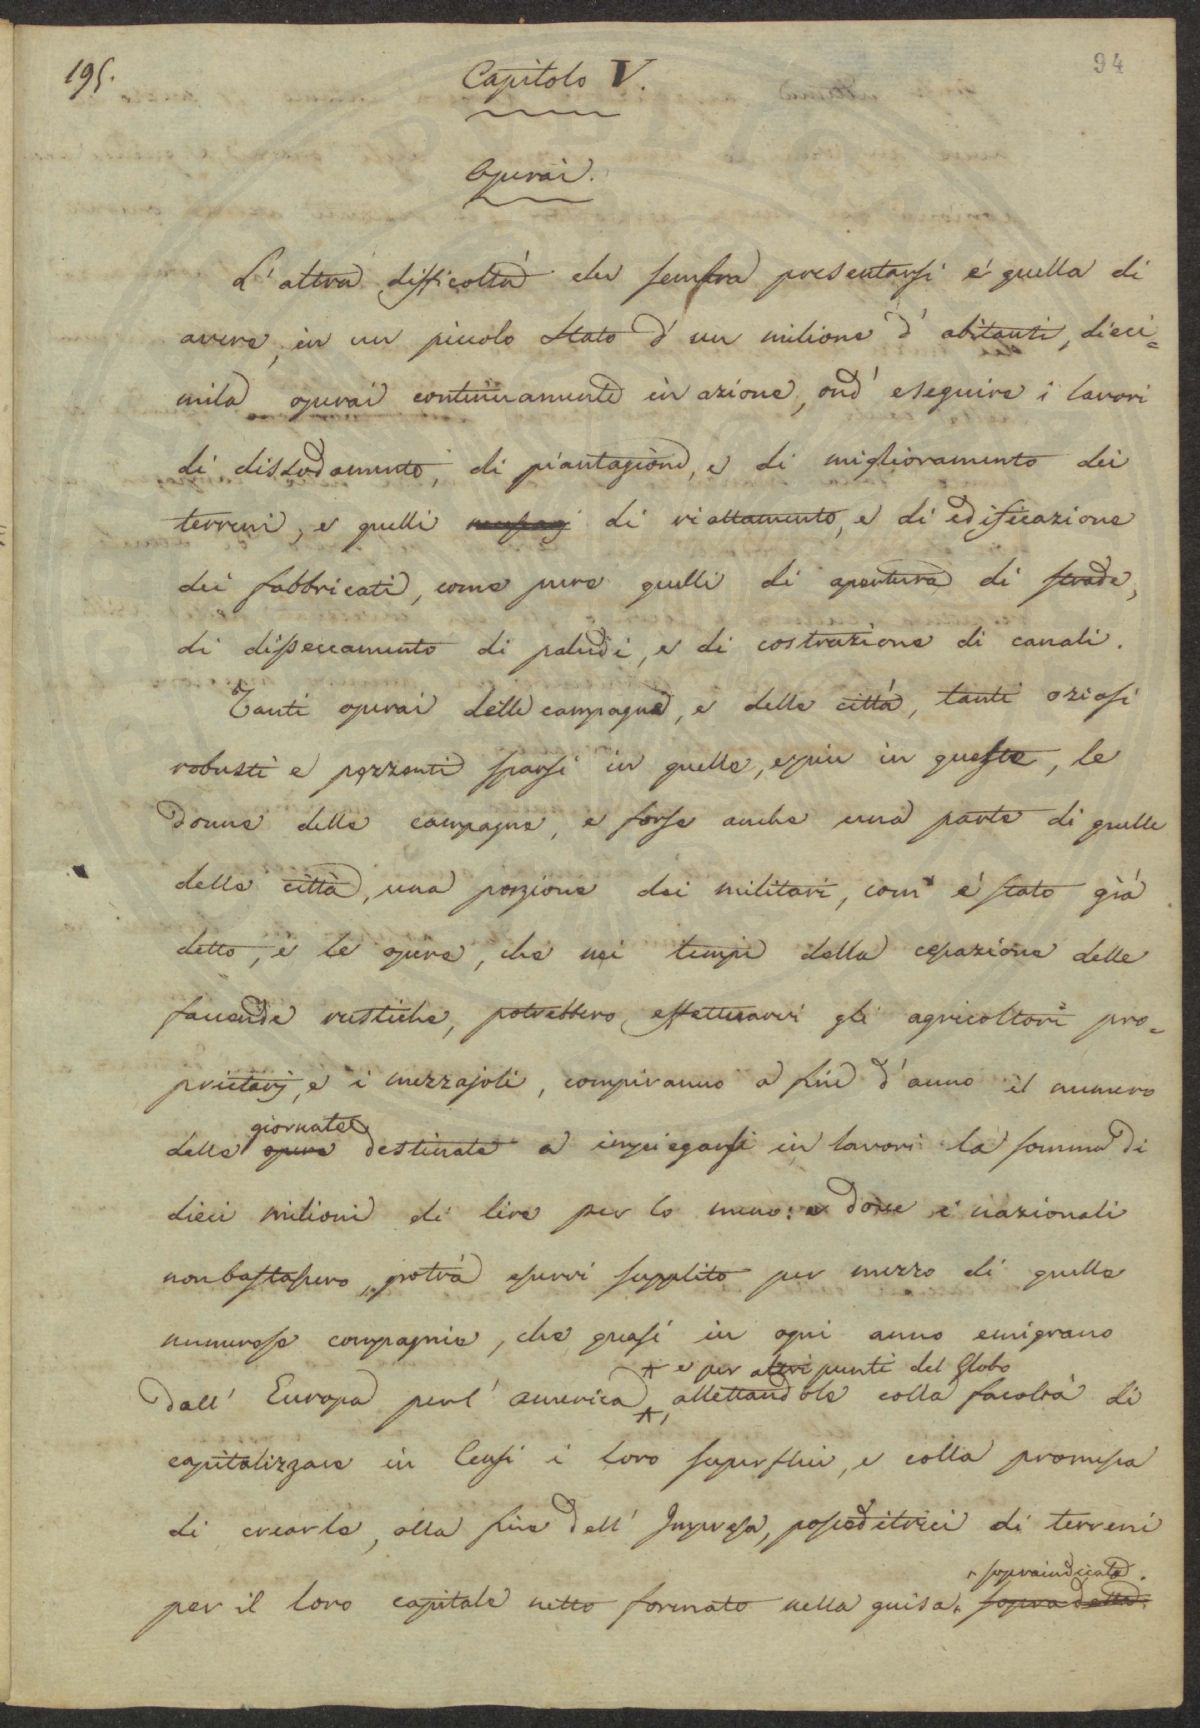 195.
94
Capitolo V.
Operai.
L'altra difficoltà che sembra presentarsi è quella di
avere, in un piccolo Stato d'un milione d'abitanti, dieci=
mila operai continuamente in azione, ond'eseguire i lavori
di dissodamento, di piantagione, e di miglioramento dei
terreni, e quelli di riattamento, e di edificazione
dei fabbricati, come pure quelli di apertura di strade,
di disseccamento di paludi, e di costruzione di canali.
Tanti operai delle campagne, e delle città, tanti oziosi
robusti e pezzenti sparsi in quelle, e più in queste, le
donne delle campagne, e forse anche una parte di quelle
delle città, una porzione dei militari, com'è stato già
detto, e le opere, che nei tempi della cessazione delle
faccende rustiche, potrebbero effettuarvi gli agricoltori pro=
prietarj, e i mezzajoli, compiranno a fine d'anno il numero
delle opere giornate destinate a impiegarsi in lavori la somma di
dieci milioni di lire per lo meno: e dove i nazionali
non bastassero, potrà esservi supplito per mezzo di quelle
numerose compagnie, che quasi in ogni anno emigrano
* e per altri punti del Globo
dall'Europa per l'America *, allettandole colla facoltà di
capitalizzare in Censi i loro superflui, e colla promessa
di crearle, alla fine dell'Impresa, posseditrici di terreni
sopraindicata.
per il loro capitale netto formato nella guisa sopradetta.